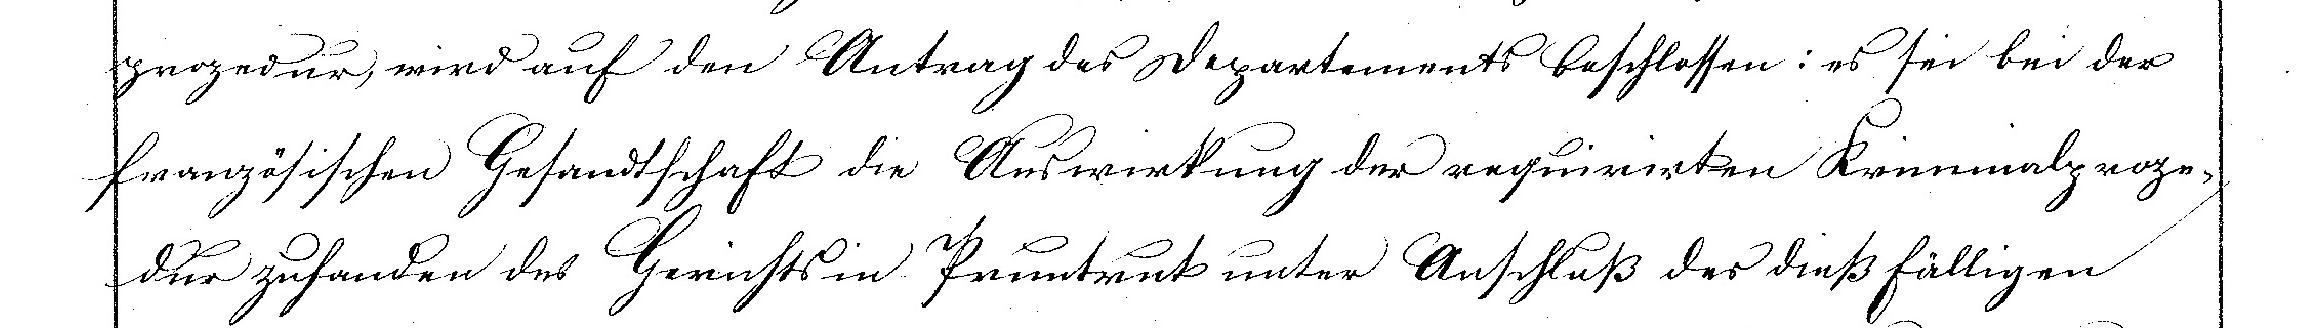 prozedur, wird auf den Antrag des Departements beschlossen: es sei bei der
französischen Gesandtschaft die Auswirkung der requirirten Kriminalproze-
dur zuhanden des Gerichts in Pruntrut unter Anschluß des dießfälligen